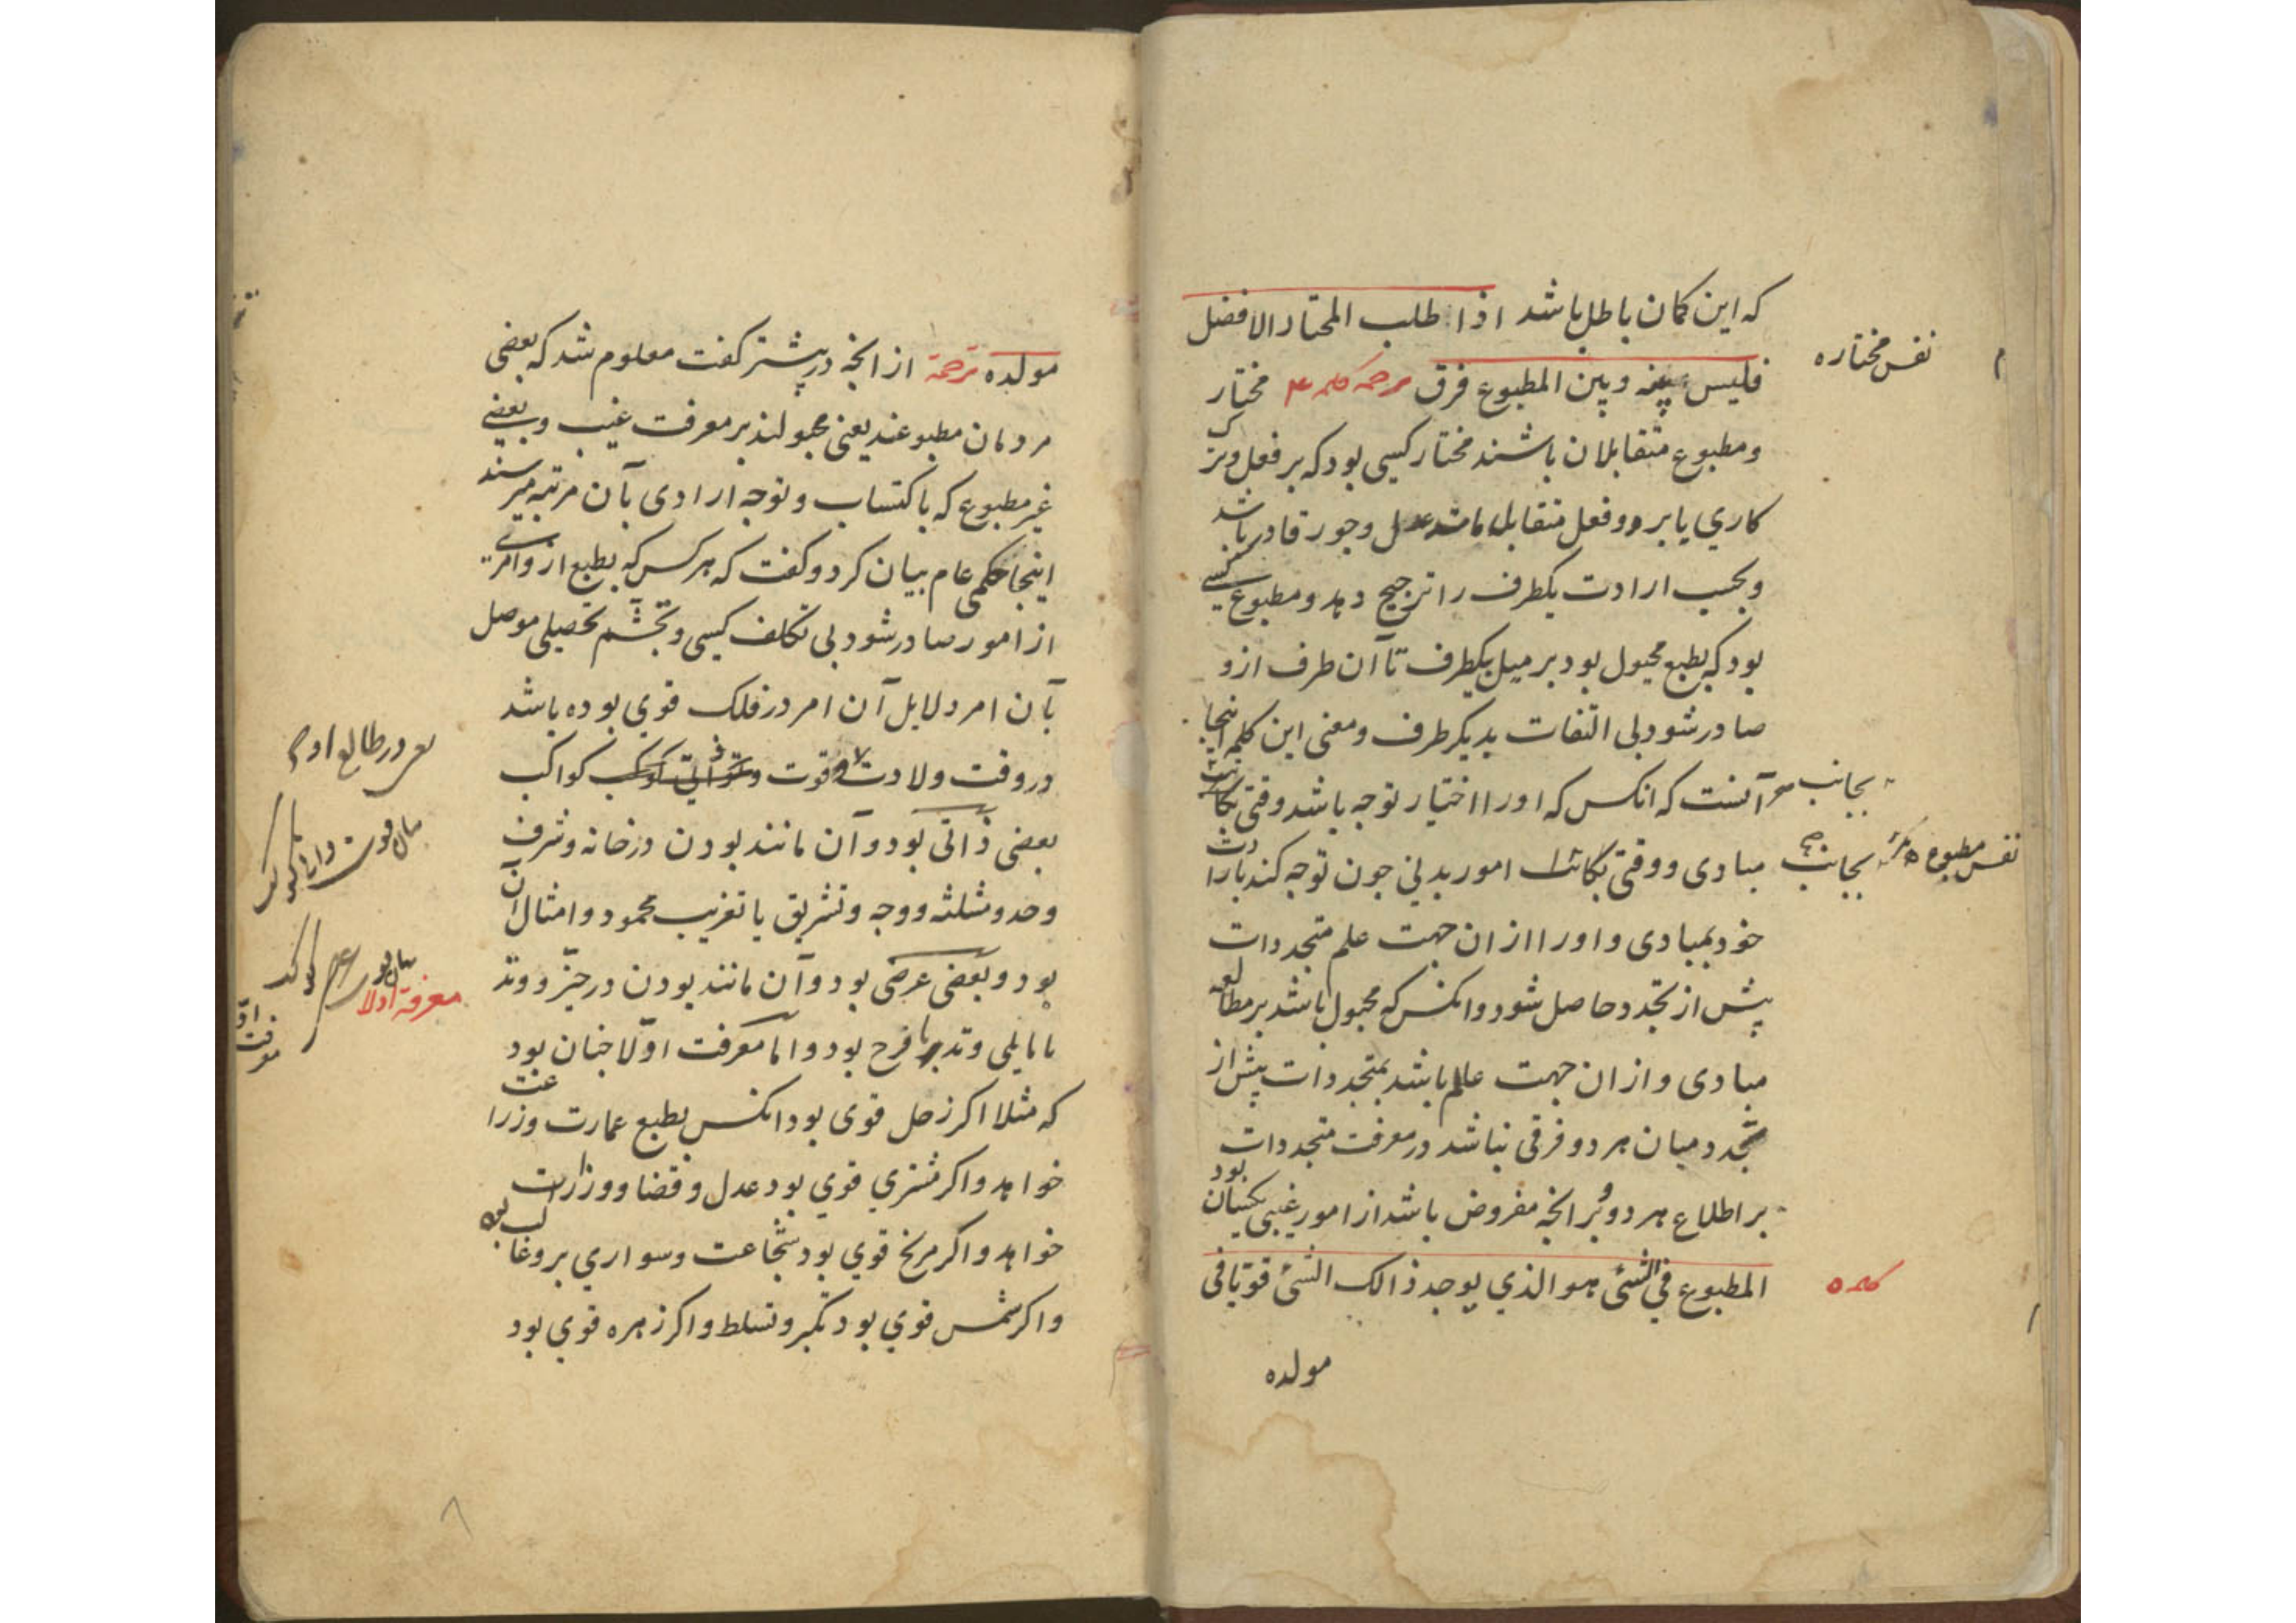 که این کمان باطل باشد اذا طلب المختار الافضل
فلیس بینه وبین المطبوع فرق ترجمه کلمه ۴ مختار
ومطبوع متقابلان باشند مختار کسی بود که بر فعل وترک
کاري یا بر دو فعل متقابل مانند عدل وجور قادر باشد
وبحسب ارادت یکطرف را ترجیح دهد ومطبوع کسی
بود که بطبع مجبول بود بر میل بیکطرف تا آن طرف ازو
صادر شود بی التفات بدیکر طرف ومعنی این کلمه اینجا
آنست که انکس که اورا اختیار توجه باشد وقتی بکائنات
مبادی ووقتی بکائنات امور بدني جون توجه کند بارادت
خود بمبادی واورا ازان جهت علم متجددات
پیش از تجدد حاصل شود وانکس که مجبول باشد بر مطالعه
مبادی وازان جهت علم باشد بمتجددات پیش از
تجدد میان هر دو فرقی نباشد در معرفت متجددات
بر اطلاع هر دو بر انجه مفروض باشد از امور غیبی یکسان بود
المطبوع في الشئ هو الذي یوجد ذالک الشئ قویا في
مولده
نفس مختاره
بجانب
نفس مطبوعه
بجانب
کلمه ٥
مولده ترجمة از انجه در پیشتر کفت معلوم شد که بعضی
مردمان مطبوعند یعنی مجبولند بر معرفت غیب وبعضی
غیر مطبوع که باکتساب وتوجه ارادی بآن مرتبه میرسند
اینجا حکمی عام بیان کرد وکفت که هر کس که بطبع ازو امری
از امور صادر شود بی تکلف کسی وتجشم تحصیلی موصل
بآن امر دلایل آن امر در فلک قوي بوده باشد
در وقت ولادت وقوت کواکب
بعضی ذاتی بود وآن مانند بودن در خانه وشرف
وحد ومثلثه ووجه وتشریق یا تغریب محمود وامثال آن
بود وبعضی عرضی بود وآن مانند بودن در حیز ووتد
یا مایلی وتد یا فرح بود واما معرفت اولا جنان بود
که مثلا اکر زحل قوی بود انکس بطبع عمارت وزراعت
خواهد واکر مشتري قوي بود عدل وقضا ووزارت
خواهد واکر مریخ قوي بود شجاعت وسواري بر وغا
واکر شمس قوي بود تکبر وتسلط واکر زهره قوي بود
در طالع او
معرفة اولا
٨